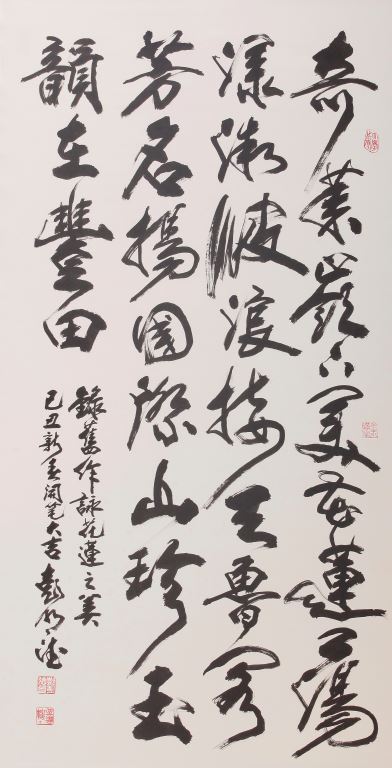 奇萊嶺下美花蓮蕩
漾微波浪接天魯閣
芳名揚國際山珍玉
韻在豐田
錄舊作詠花蓮之美
己丑新春開筆大吉 彭